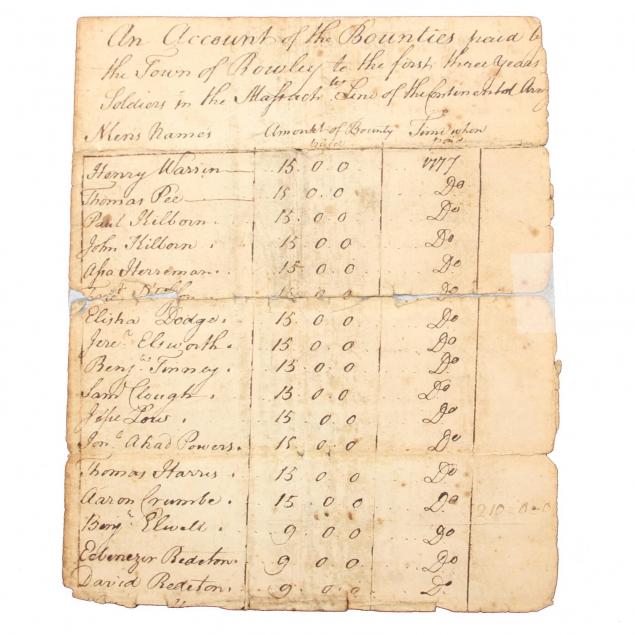 An Account of the Bounties paid b
the Town of Rowley to the first three Years
Soldiers in the Massachts Line of the Continental Army
Mens Names Amount of Bounty paid Time when paid
Henry Warrin 15.0.0 1777
Thomas Pee 15.0.0 Do
Paul Kilborn 15.0.0 Do
John Kilborn 15.0.0 Do
Asa Herreman 15.0.0 Do
15 0 0 Do
Elisha Dodge 15.0.0 Do
Jere. Elsworth 15.0.0 Do
Benj. Tenney 15.0.0 Do
Saml Clough 15.0.0 Do
Jesse Low 15.0.0 Do
Jona Ahad Powers 15.0.0 Do
Thomas Harris 15.0.0 Do
Aaron Crumbe 15.0.0 Do 210-0-0
Benj. Elwell 9.0.0 Do
Ebenezer Redeton 9.0.0 Do
David Redeton 9.0.0 Do